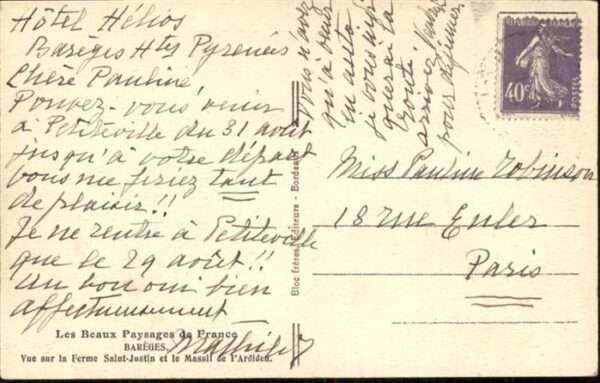 Hôtel Hélios
Barèges Htes Pyrenées
Chère Pauline
Pouvez-vous venir
à Petiteville du 31 août
jusqu'à votre départ
vous me feriez tant
de plaisir!!
Je ne rentre à Petiteville
que le 29 août!!
Un bon oui bien
affectueusement
Mathilde
Vous n'avez
qu'à venir
en auto
je vous
la
route
arrivez
pour déjeuner
40c
POSTES
Miss Pauline Robinson
18 rue Euler
Paris
Bloc frères, Editeurs - Bordeaux
Les Beaux Paysages de France
BARÈGES
Vue sur la Ferme Saint-Justin et le Massif de l'Ardiden